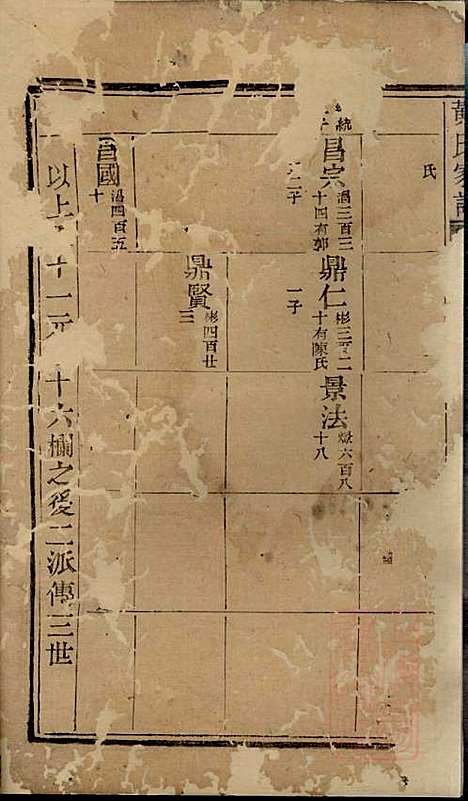 黃氏家譜
氏
統
昌宗
渦三百三
十四有郭
二子
鼎仁
彬三百二
十有陳氏
一子
景法
燉六百八
十八
鼎賢
彬四百廿
三
昌國
渦四百五
十
以上 十一元 十六欄之後二派傳三世